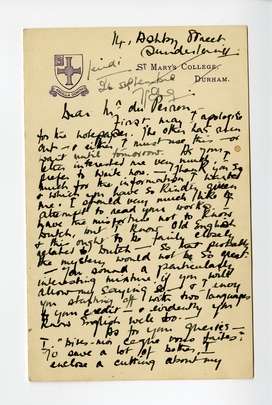 14, Ashby Street
Sunderland
St Mary's College,
Durham.
26 September
Dear Mr du Perron,
First may I apologise
for the notepaper. The other has run
out – & either I must use this – or
wait until tomorrow. As your
letter interested me very much I
prefer to write now. – Thank you so
much for the information I wanted
& which you have so kindly given
me. I should very much like to
attempt to read your work. I
have the misfortune not to know
Dutch, but I know Old English
& this ought to be fairly closely
related to Dutch – so that probably
the mystery would not be so great.
– You sound a particularly
interesting mixture if you will
allow my saying so – & I envy
you starting off with two languages
to your credit – & evidently you
know English well too. –
As for your queries –
I. "Dites-moi ce que vous faites":
To save a lot of bother, I
enclose a cutting about my